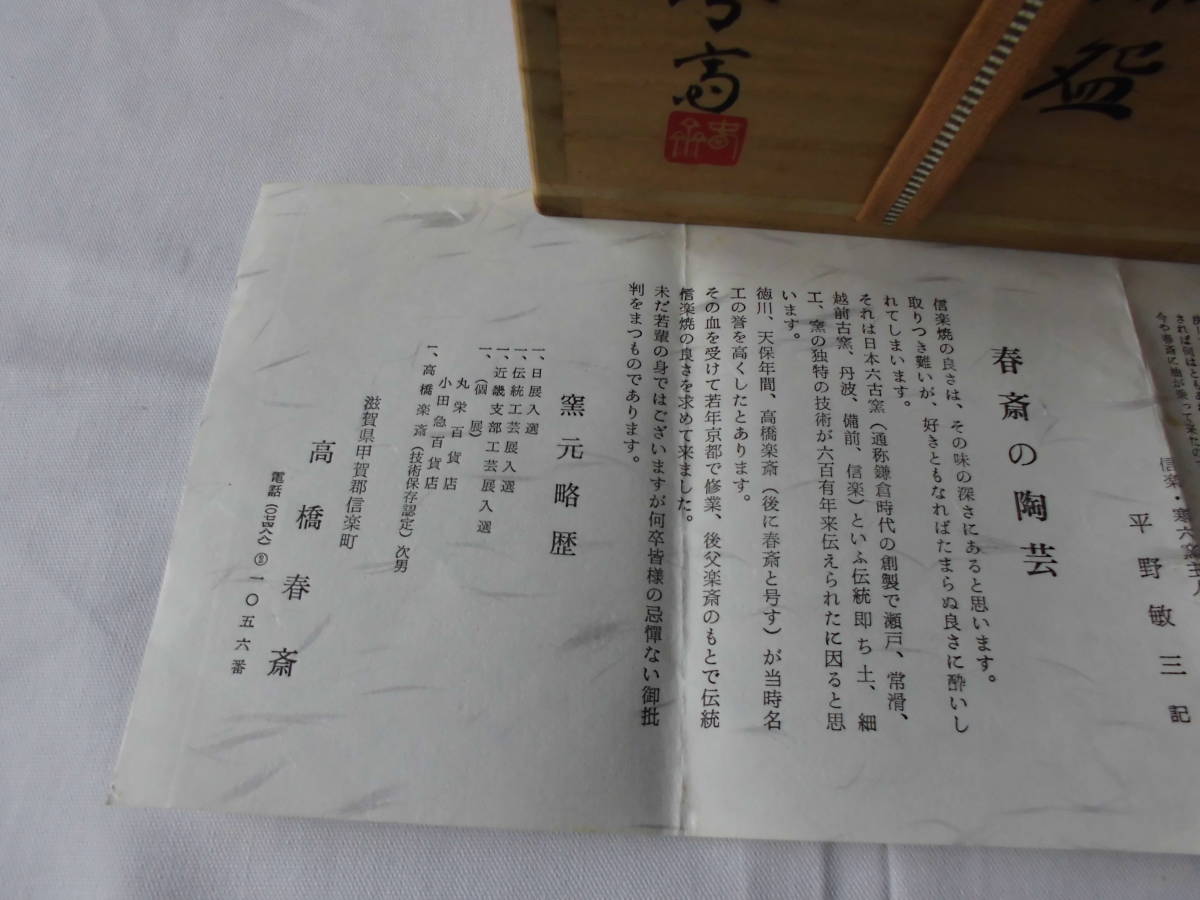 盌
高
信楽・寒六窯主人
平野敏三記
春斎の陶芸
信楽焼の良さは、その味の深さにあると思います。
取りつき難いが、好きともなればたまらぬ良さに酔いし
れてしまいます。
それは日本六古窯（通称鎌倉時代の創製で瀬戸、常滑、
越前古窯、丹波、備前、信楽）といふ伝統即ち土、細
工、窯の独特の技術が六百有年来伝えられたに因ると思
います。
徳川、天保年間、高橋楽斎（後に春斎と号す）が当時名
工の誉を高くしたとあります。
その血を受けて若年京都で修業、後父楽斎のもとで伝統
信楽焼の良さを求めて来ました。
未だ若輩の身ではございますが何卒皆様の忌憚ない御批
判をまつものであります。
窯元略歴
一、日展入選
一、伝統工芸展入選
一、近畿支部工芸展入選
一、（個展）
丸栄百貨店
小田急百貨店
一、高橋楽斎（技術保存認定）次男
滋賀県甲賀郡信楽町
高橋春斎
一〇五六番